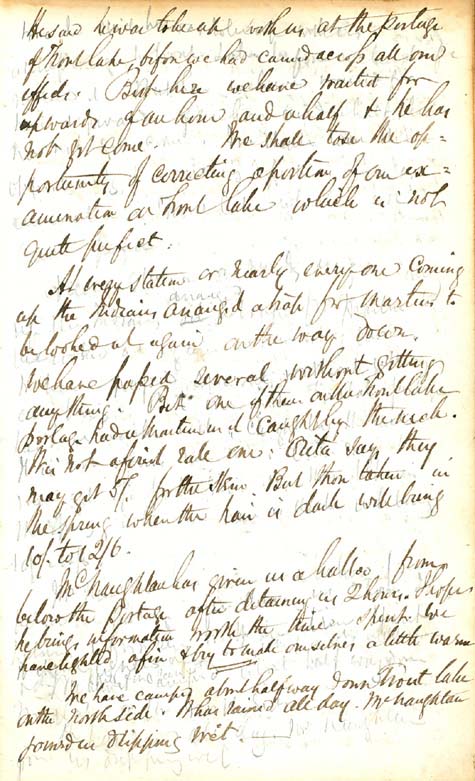 He said he was to be up with us at the Portage
of Trout lake, before we had carried across all our
effects. But here we have waited for
upwards of an hour and a half & he has
not yet come. We shall lose the op=
portunity of correcting a portion of our ex=
amination on Trout lake which is not
quite perfect.
At every station or nearly every one coming
up the Indians arranged a trap for Martins to
be looked at again on the way down.
We have passed several without getting
anything. But one of them on the Trout lake
portage had a Martin in it caught by the neck.
It is not a first rate one. they
may get 5/. for the skin. But those taken in
the spring when the hair is dark will bring
10/. to 12/6.
McNaughtan has given us a halloo from
below the Portage after detaining us 2 hours. I hope
he brings information worth the time spent. We
have lighted a fire & try to make ourselves a little warm
We have camped about halfway down Trout lake
on the north side. It has rained all day. McNaughtan
joined us dripping wet.